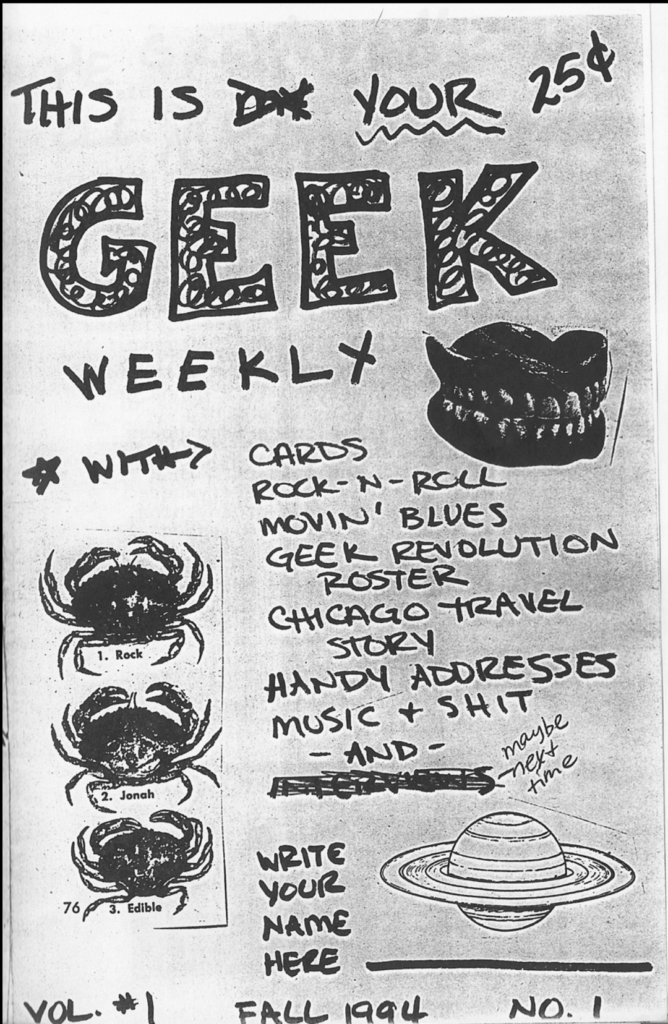 THIS IS YOUR 25¢
GEEK
WEEKLY
WITH→ CARDS
ROCK-N-ROLL
MOVIN' BLUES
GEEK REVOLUTION
ROSTER
CHICAGO TRAVEL
STORY
HANDY ADDRESSES
MUSIC + SHIT
- AND -
INTERVIEWS - maybe
next
time
1. Rock
2. Jonah
76 3. Edible
WRITE
YOUR
NAME
HERE
VOL. #1 FALL 1994 NO. 1